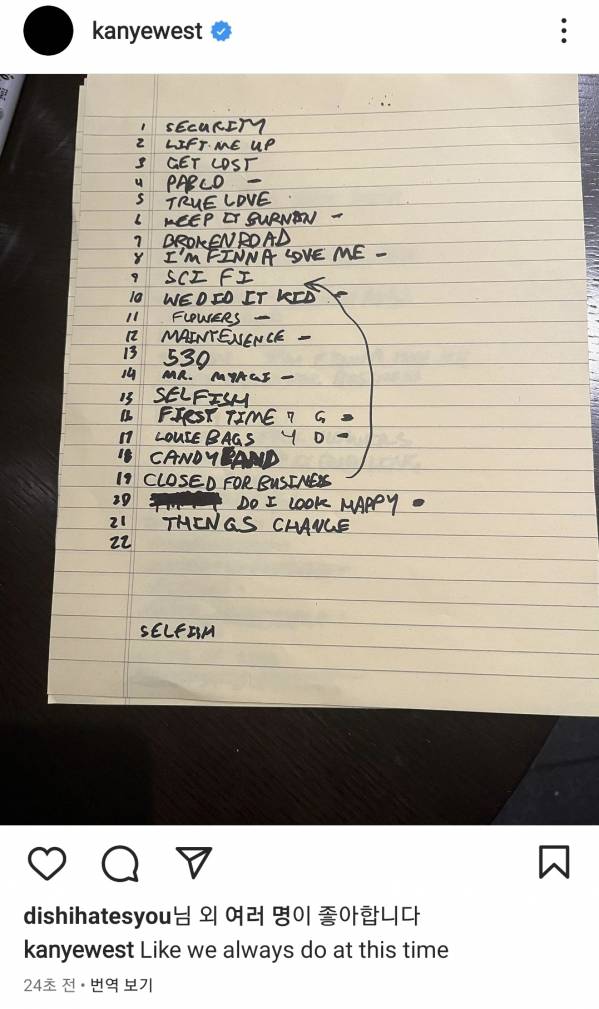 kanyewest
1 SECURITY
2 LIFT ME UP
3 GET LOST
4 PABLO –
5 TRUE LOVE
6 KEEP IT BURNIN –
7 BROKEN ROAD
8 I'M FINNA LOVE ME –
9 SCI FI
10 WE DID IT KID –
11 FLOWERS –
12 MAINTENENCE –
13 530
14 MR. MYAGI –
15 SELFISH
16 FIRST TIME 7 G –
17 LOUIE BAGS 4 D –
18 CANDYLAND
19 CLOSED FOR BUSINESS
20 DO I LOOK HAPPY •
21 THINGS CHANGE
22
SELFISH
dishihatesyou님 외 여러 명이 좋아합니다
kanyewest Like we always do at this time
24초 전 • 번역 보기